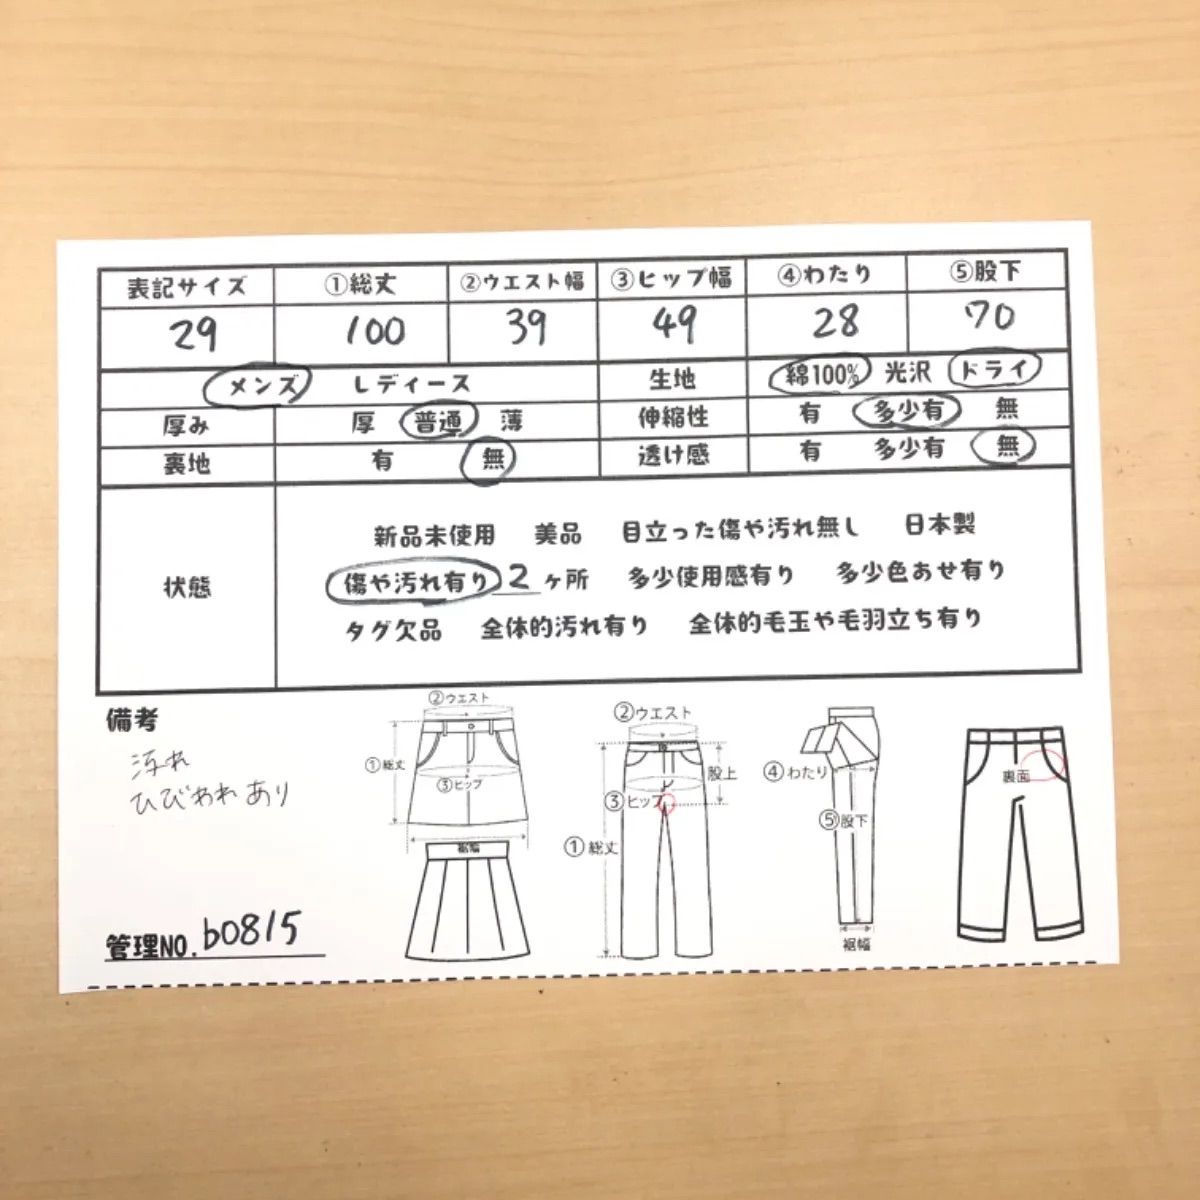 表記サイズ ①総丈 ②ウエスト幅 ③ヒップ幅 ④わたり ⑤股下
29 100 39 49 28 70
メンズ レディース 生地 綿100% 光沢 ドライ
厚み 厚 普通 薄 伸縮性 有 多少有 無
裏地 有 無 透け感 有 多少有 無
状態
新品未使用 美品 目立った傷や汚れ無し 日本製
傷や汚れ有り 2 ヶ所 多少使用感有り 多少色あせ有り
タグ欠品 全体的汚れ有り 全体的毛玉や毛羽立ち有り
備考
汚れ
ひびわれあり
管理NO. b0815
②ウエスト
①総丈
③ヒップ
裾幅
②ウエスト
股上
③ヒップ
①総丈
④わたり
⑤股下
裾幅
裏面